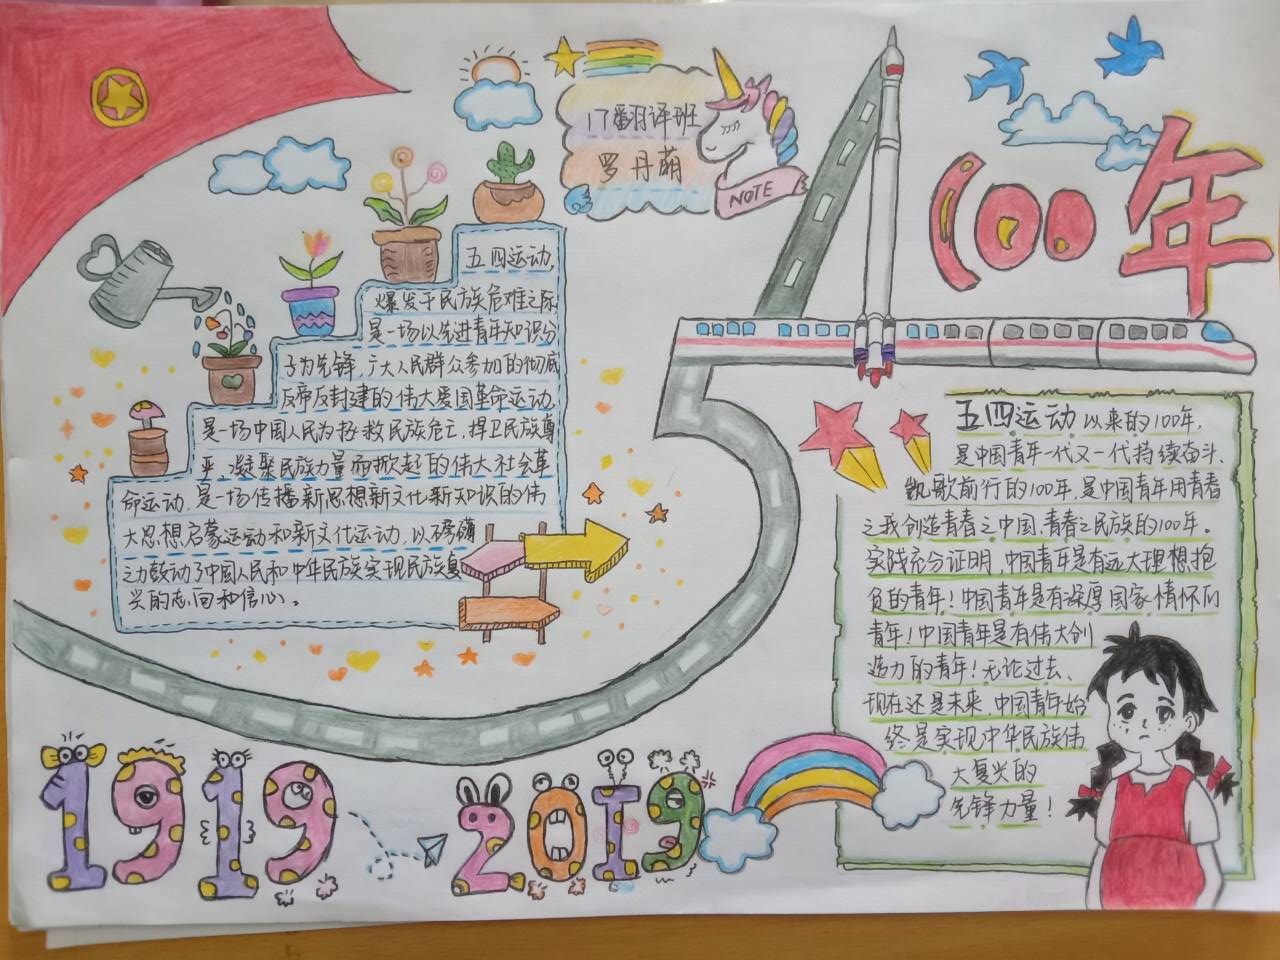 17翻译班
罗丹萌
NOTE
54
100年
五四运动,
爆发于民族危难之际
是一场以先进青年知识分
子为先锋,广大人民群众参加的彻底
反帝反封建的伟大爱国革命运动,
是一场中国人民为拯救民族危亡,捍卫民族尊
严、凝聚民族力量而掀起的伟大社会革
命运动,是一场传播新思想新文化新知识的伟
大思想启蒙运动和新文化运动,以磅礴
之力鼓动了中国人民和中华民族实现民族复
兴的志向和信心。
五四运动以来的100年,
是中国青年一代又一代持续奋斗、
凯歌前行的100年,是中国青年用青春
之我创造青春之中国、青春之民族的100年。
实践充分证明,中国青年是有远大理想抱
负的青年!中国青年是有深厚国家情怀的
青年!中国青年是有伟大创
造力的青年!无论过去、
现在还是未来,中国青年始
终是实现中华民族伟
大复兴的
先锋力量!
1919
2019